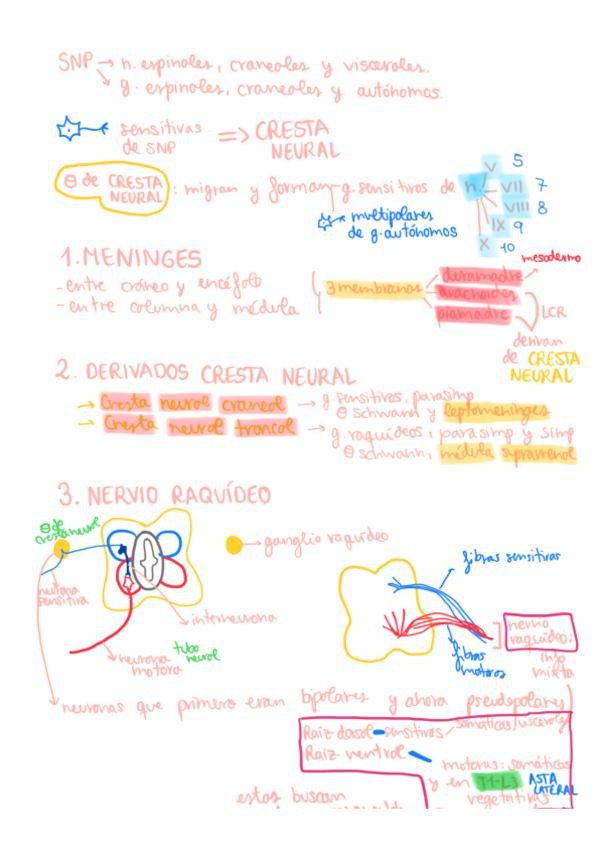 SNP → n. espinales, craneales y viscerales.
↘ g. espinales, craneales y autónomos.
sensitivas
de SNP
=> CRESTA
NEURAL
Θ de CRESTA
NEURAL
: migran y forman g. sensitivos de n.
V 5
VII 7
VIII 8
IX 9
X 10
multipolares
de g. autónomos
1. MENINGES
- entre cráneo y encéfalo
- entre columna y médula
3 membranas
duramadre
mesodermo
aracnoides
piamadre
LCR
derivan
de CRESTA
NEURAL
2. DERIVADOS CRESTA NEURAL
→ Cresta neural craneal → g. sensitivos, parasimp
Θ schwann y leptomeninges
→ Cresta neural troncal → g. raquídeos, parasimp y simp
Θ schwann, médula suprarrenal
3. NERVIO RAQUÍDEO
Θ de
cresta neural
→ ganglio raquídeo
neurona
sensitiva
interneurona
neurona
motora
tubo
neural
fibras sensitivas
fibras
motoras
nervio
raquídeo:
mixta
neuronas que primero eran bipolares y ahora pseudopolares
Raíz dosal sensitivas
somáticas/viscerales
Raiz ventral
motoras: somáticas
y en T1-L3 ASTA
LATERAL
vegetativas
estas buscan